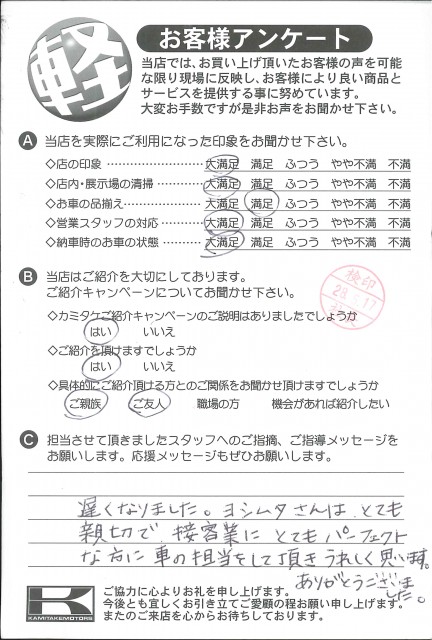 軽
お客様アンケート
当店では、お買い上げ頂いたお客様の声を可能
な限り現場に反映し、お客様により良い商品と
サービスを提供する事に努めています。
大変お手数ですが是非お声をお聞かせ下さい。
A 当店を実際にご利用になった印象をお聞かせ下さい。
◇店の印象 ………………………… 大満足 満足 ふつう やや不満 不満
◇店内・展示場の清掃 ………… 大満足 満足 ふつう やや不満 不満
◇お車の品揃え ………………… 大満足 満足 ふつう やや不満 不満
◇営業スタッフの対応 ………… 大満足 満足 ふつう やや不満 不満
◇納車時のお車の状態 ………… 大満足 満足 ふつう やや不満 不満
B 当店はご紹介を大切にしております。
ご紹介キャンペーンについてお聞かせ下さい。
検印
28.5.17
◇カミタケご紹介キャンペーンのご説明はありましたでしょうか
はい いいえ
◇ご紹介を頂けますでしょうか
はい いいえ
◇具体的にご紹介頂ける方とのご関係をお聞かせ頂けますでしょうか
ご親族 ご友人 職場の方 機会があれば紹介したい
C 担当させて頂きましたスタッフへのご指摘、ご指導メッセージを
お願いします。応援メッセージもぜひお願いします。
遅くなりました。ヨシムタさんは とても
親切で 接客業に とてもパーフェクト
な方に 車の担当をして頂き うれしく思います。
ありがとうございま
した。
K
KAMITAKEMOTORS
ご協力に心よりお礼を申し上げます。
今後とも宜しくお引き立てご愛顧の程お願い申し上げます。
またのご来店を心からお待ちしております。